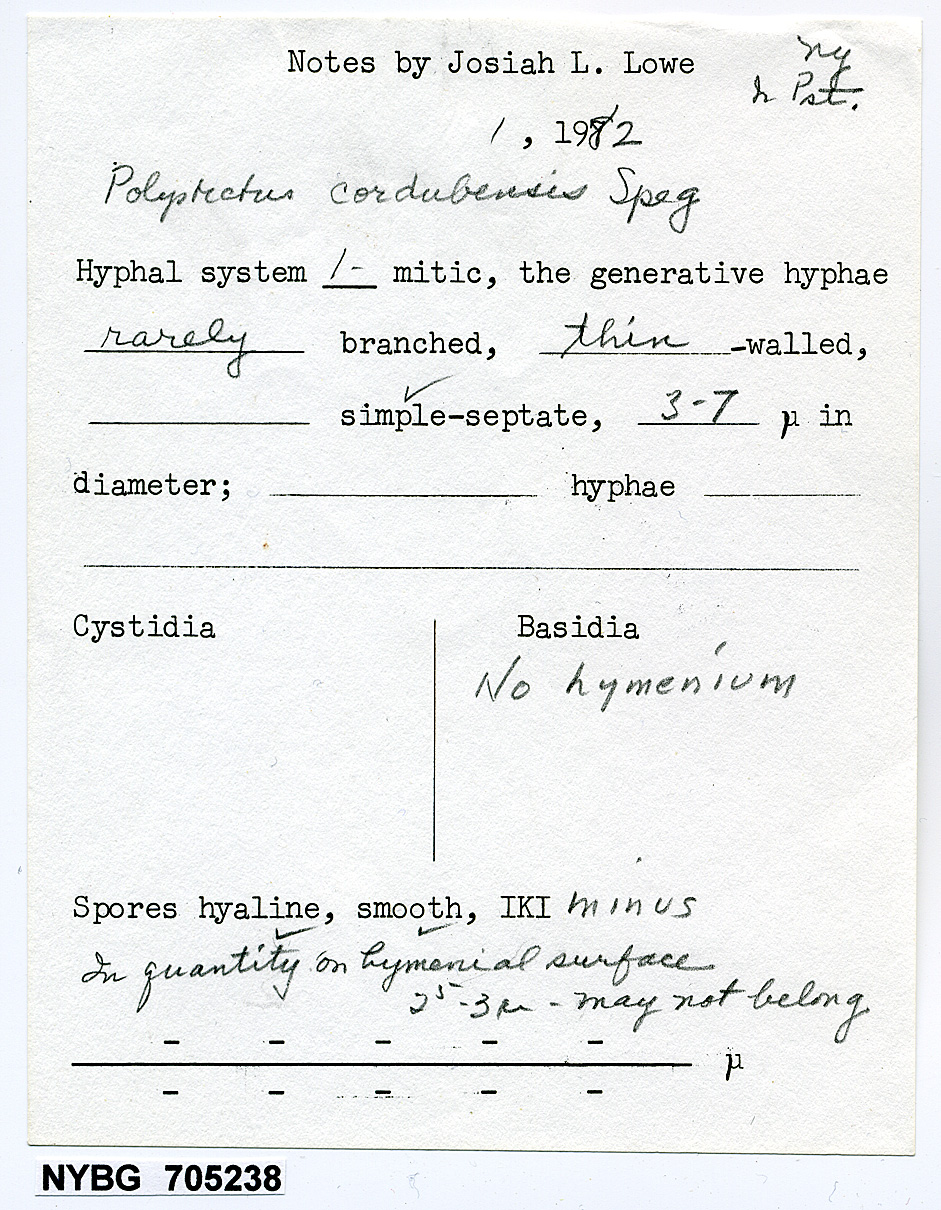 Notes by Josiah L. Lowe
ny
In Pst.
1, 1982
Polystictus cordubensis Speg
Hyphal system 1- mitic, the generative hyphae
rarely branched, thin -walled,
simple-septate, 3-7 μ in
diameter; hyphae
Cystidia
Basidia
No hymenium
Spores hyaline, smooth, IKI minus
In quantity on hymenial surface
25-3μ - may not belong
- - - - -
μ
- - - - -
NYBG 705238